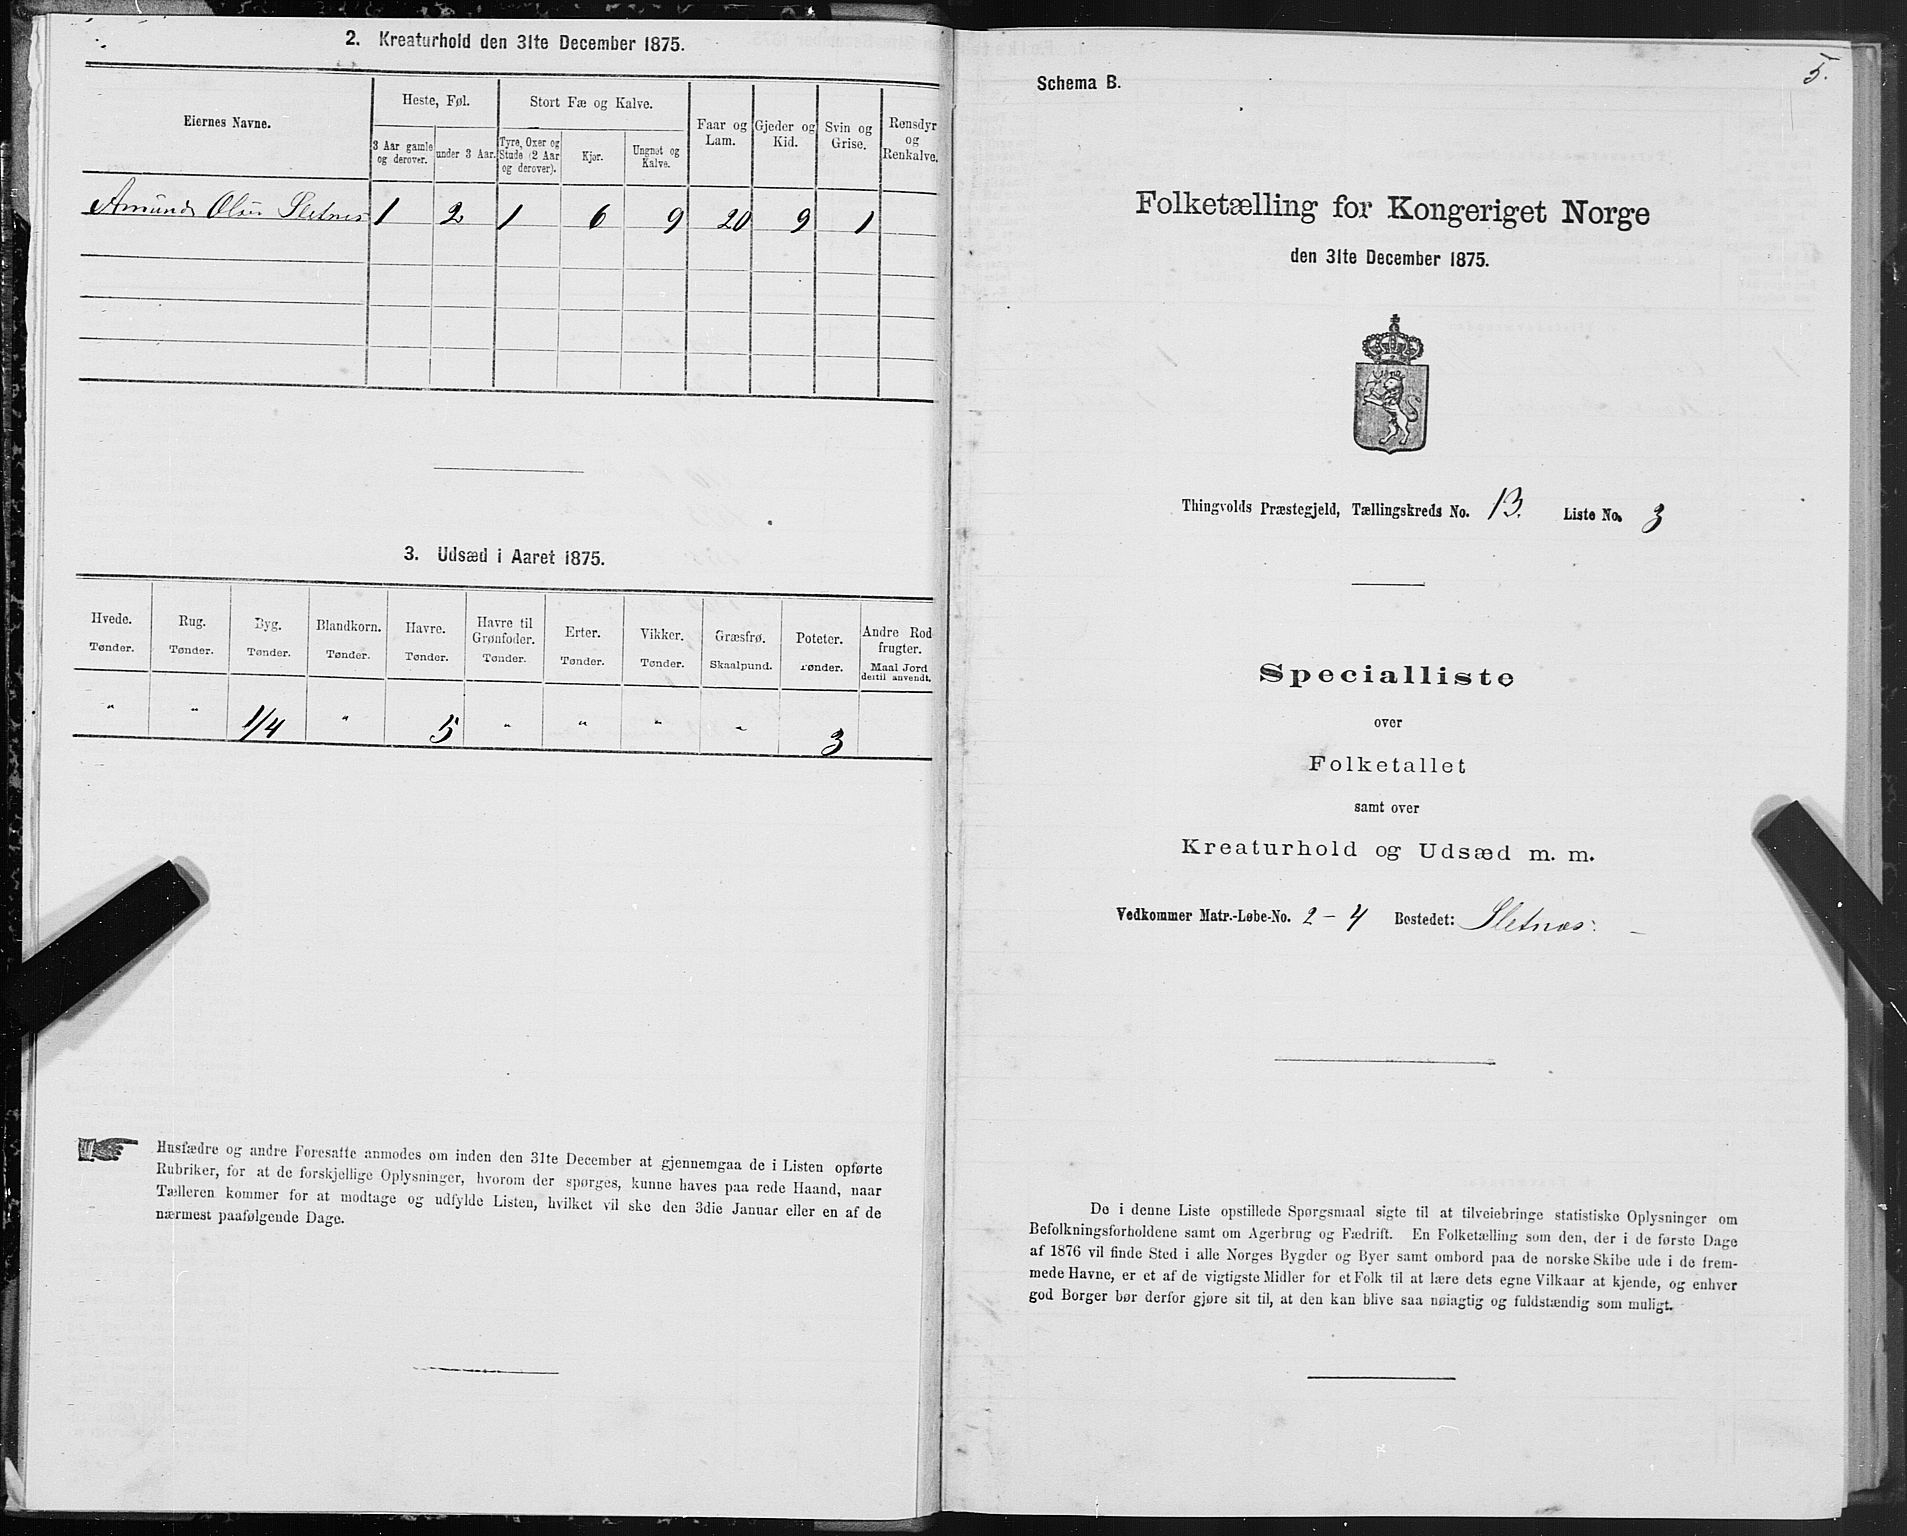 2. Kreaturhold den 31te December 1875.
Eiernes Navne.
Heste, Føl.
Stort Fæ og Kalve.
Faar og Lam.
Gjeder og Kid.
Svin og Grise.
Rensdyr og Renkalve.
3 Aar gamle og derover.
under 3 Aar.
Tyre, Oxer og Stude (2 Aar og derover).
Kjør.
Ungnøt og Kalve.
Amund Olsen Sletnes 1 2 1 6 9 20 9 1
3. Udsæd i Aaret 1875.
Hvede. Rug. Byg. Blandkorn. Havre. Havre til Grønfoder. Erter. Vikker. Græsfrø. Poteter. Andre Rodfrugter.
Tønder. Tønder. Tønder. Tønder. Tønder. Tønder. Tønder. Tønder. Skaalpund. Tønder. Maal Jord dertil anvendt.
" " 1/4 " 5 " " " " 3
Husfædre og andre Foresatte anmodes om inden den 31te December at gjennemgaa de i Listen opførte
Rubriker, for at de forskjellige Oplysninger, hvorom der spørges, kunne haves paa rede Haand, naar
Tælleren kommer for at modtage og udfylde Listen, hvilket vil ske den 3die Januar eller en af de
nærmest paafølgende Dage.
5.
Schema B.
Folketælling for Kongeriget Norge
den 31te December 1875.
Thingvolds Præstegjeld, Tællingskreds No. 13. Liste No. 3
Specialliste
over
Folketallet
samt over
Kreaturhold og Udsæd m. m.
Vedkommer Matr.-Løbe-No. 2 - 4 Bostedet: Sletnæs.
De i denne Liste opstillede Spørgsmaal sigte til at tilveiebringe statistiske Oplysninger om
Befolkningsforholdene samt om Agerbrug og Fædrift. En Folketælling som den, der i de første Dage
af 1876 vil finde Sted i alle Norges Bygder og Byer samt ombord paa de norske Skibe ude i de frem-
mede Havne, er et af de vigtigste Midler for et Folk til at lære dets egne Vilkaar at kjende, og enhver
god Borger bør derfor gjøre sit til, at den kan blive saa nøiagtig og fuldstændig som muligt.